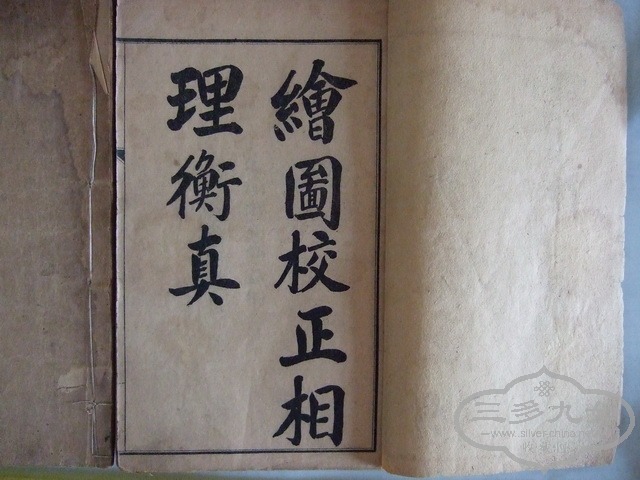 繪圖校正相
理衡真
三多九
www.silver-china.net